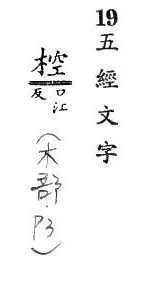 19 五經文字
椌
口江
反
(木部.P3)